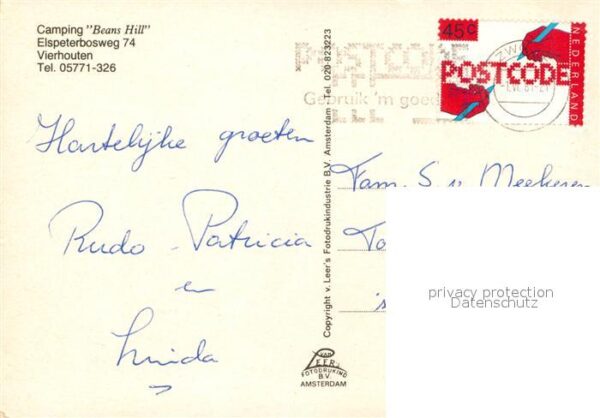 Camping "Beans Hill"
Elspeterbosweg 74
Vierhouten
Tel. 05771-326
Hartelijke groeten
Rudo Patricia
en
Linida
Copyright v. Leer's Fotodrukindustrie B.V. Amsterdam - Tel. 020-823223
VAN
LEER's
FOTODRUKIND
B.V.
AMSTERDAM
POSTCODE
Gebruik 'm goed
45c
POSTCODE
NEDERLAND
Fam. S. v. Meekeren
privacy protection
Datenschutz